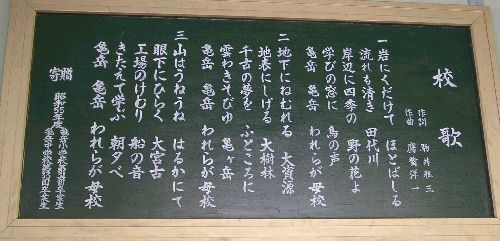 校歌
作詞 駒井雅三
作曲 鷹觜洋一
一 岩にくだけて ほとばしる
流れも清き 田代川
岸辺に四季の 野の花よ
学びの窓に 鳥の声
亀岳 亀岳 われらが母校
二 地下にねむれる 大資源
地表にしげる 大樹林
千古の夢を ふところに
雲わきそびゆ 亀ヶ岳
亀岳 亀岳 われらが母校
三 山はうねうね はるかにて
眼下にひらく 大宮古
工場のけむり 船の音
きたえて学ぶ 朝夕べ
亀岳 亀岳 われらが母校
寄贈
昭和55年度
亀岳小学校
亀岳中学校